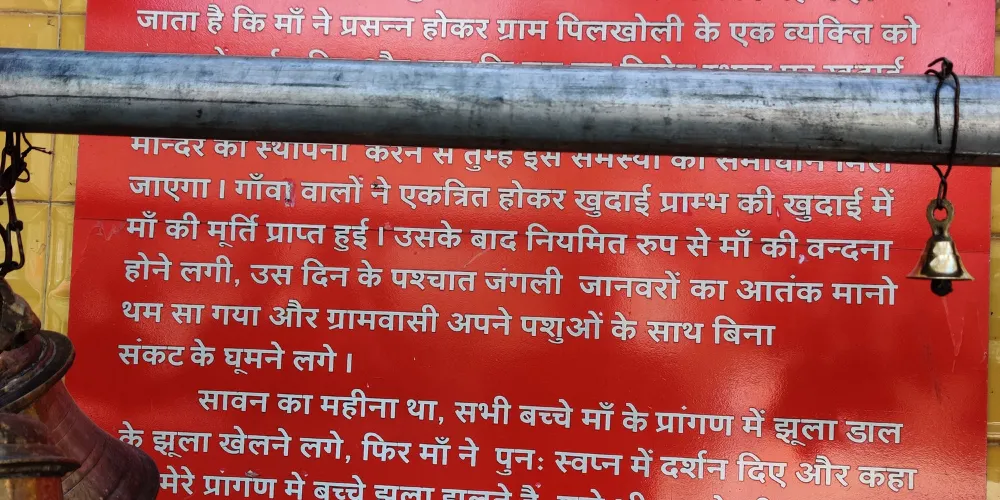 जाता है कि माँ ने प्रसन्न होकर ग्राम पिलखोली के एक व्यक्ति को
मन्दिर की स्थापना करने से तुम्हें इस समस्या का समाधान मिल
जाएगा । गाँवा वालों ने एकत्रित होकर खुदाई प्राम्भ की खुदाई में
माँ की मूर्ति प्राप्त हुई । उसके बाद नियमित रुप से माँ की वन्दना
होने लगी, उस दिन के पश्चात जंगली जानवरों का आतंक मानो
थम सा गया और ग्रामवासी अपने पशुओं के साथ बिना
संकट के घूमने लगे ।
सावन का महीना था, सभी बच्चे माँ के प्रांगण में झूला डाल
के झूला खेलने लगे, फिर माँ ने पुनः स्वप्न में दर्शन दिए और कहा
मेरे प्रांगण में बच्चे झूला झूलते है